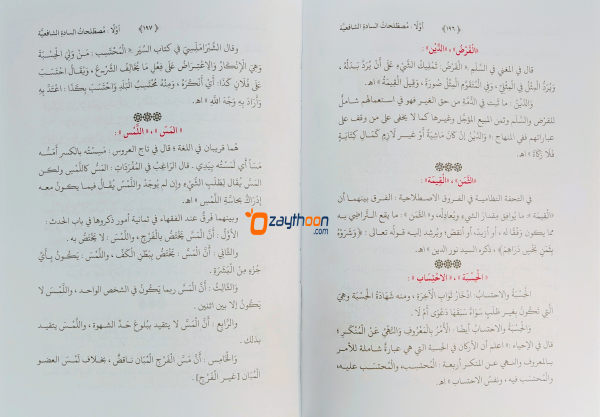 ﴿١٩٦﴾ أوَّلًا : مُصطلحاتُ السادةِ الشافعيَّة
«القَرْضُ» ، «الدَّيْن» :
قال في المغني في السَّلَم «القَرْض: تَمْليكُ الشَّيْءِ عَلَى أَنْ يَرُدَّ بَدَلَهُ ،
وَيَرُدُّ المِثْلَ فِي المِثْلِيِّ ، وَفِي المُتَقَوِّمِ المِثْلَ صُورَةً ، وَقِيلَ القِيمَةَ » اهـ .
وَالدَّيْنُ : ما ثبت في الذِّمَّة من حق الغير فهو في استعمالهم شاملٌ
للقرض والسَّلَم وثمن المبيع المؤجَّل وغيرها كما لا يخفى على من وقف على
عباراتهم ففي المنهاج « وَالدَّيْنُ إِنْ كَانَ مَاشِيَةً أَوْ غَيرَ لازِمٍ كَمَالِ كِتَابَةٍ
فَلَا زَكَاةَ » اهـ .
«الثَّمَن» ، «القِيْمَة» :
في التحفة النظامية في الفروق الاصطلاحية : الفرق بينهما أن
«القيمة » : ما يوافق مقدارَ الشيء ويُعادِلُه، و«الثمن » : ما يقع التَّراضي به
مما يكون وَفْقًا له ، أو أزيدَ، أو أنقصَ ، ويُرشد إليه قوله تعالى : ﴿ وَشَرَوْهُ
بِثَمَنٍ بَخْسٍ دَرَاهِمَ﴾ ، ذكره السيد نور الدين » اهـ .
« الحِسْبَة » ، « الاحْتِسَاب » :
الحِسْبَةُ والاحتسابُ: ادِّخارُ ثَوابِ الآخِرَةِ ، ومنه شَهَادَةُ الحِسْبَةِ وهِيَ
الَّتِي تكونُ بغيرِ طَلَبٍ سَوَاءٌ سَبَقَهَا دَعْوَى أَمْ لَا .
والْحِسْبَةُ والاحتسابُ أيضًا : الأَمْرُ بالْمَعْرُوفِ والنَّهْيُ عَنِ المُنْكَرِ ؛
قال في الإحياء : « اعلم أن الأركان في الحسبة التي هي عبارةٌ شاملة للأمر
بالمعروف والنهي عن المنكر أربعة : الْمُحتَسِب، والْمحتَسَب عليه،
والْمحتَسَب فيه ، ونفسُ الاحتساب » اهـ .
﴿١٩٧﴾ أوَّلًا : مُصطلحاتُ السادةِ الشافعيَّة
وقال الشَّبْرَامَلِّسِيّ في كتاب السِّيَر « الْمُحْتَسِب : مَنْ وَلِيَ الْحِسْبَةَ
وَهِيَ الْإِنْكَارُ وَالِاعْتِرَاضُ عَلَى فِعْلِ مَا يُخَالِفُ الشَّرْعَ ، وَيُقَالُ احْتَسَبَ
عَلَى فُلَانٍ كَذَا : أَيْ أَنْكَرَهُ ، وَمِنْهُ مُحْتَسِبُ الْبَلَدِ وَاحْتَسَبَ بِكَذَا : اعْتَدَّ بِهِ
وَأَرَادَ بِهِ وَجْهَ اللهِ » اهـ .
« المَسّ » ، « اللَّمْس » :
هُما قريبان في اللغة ؛ قال في تاج العروس : مَسِسْتُه بالكسر أَمَسُّه
مَسًّا أي لَمَسْتُه بِيَدِي . قال الرّاغِبُ في الْمُفْرَدَاتِ : المَسُّ كاللَّمْسِ ولكن
المَسّ يُقال لِطَلَبِ الشَّيْءِ وإن لم يُوجَدْ واللَّمْسُ يُقال فيما يكونُ معه
إدْرَاكٌ بحاسَّةِ اللَّمْس » اهـ .
وبينهما فرقٌ عند الفقهاء، في ثمانية أمور ذكروها في باب الحدث :
الأَوَّلُ : أنَّ المَسَّ يَخْتَصُّ بِالْفَرْجِ ، واللَّمْسُ : لا يَخْتَصُّ به .
والثَّاني : أنَّ المَسَّ يَخْتَصُّ بِبَطْنِ الْكَفِّ ، واللَّمْسُ : يكون بِـأَيِّ
جُزْءٍ مِنَ الْبَشَرَةِ .
والثَّالِثُ : أنَّ المَسَّ ربما يكونُ في الشخص الواحد ، واللَّمْسُ لا
يَكُونُ إلا بين اثنين .
والرَّابع : أنَّ الْمَسَّ لا يتقيد ببُلوغ حَدِّ الشهوة ، واللَّمْسُ يتقيد
بذلك .
والْخَامِسُ : أنَّ مَسَّ الفَرْجِ الْمُبَانِ ناقضٌ ، بخلاف لَمْسِ العضو
الْمُبَانِ [غيرِ الفَرْجِ] .
Ozaythoon
.com